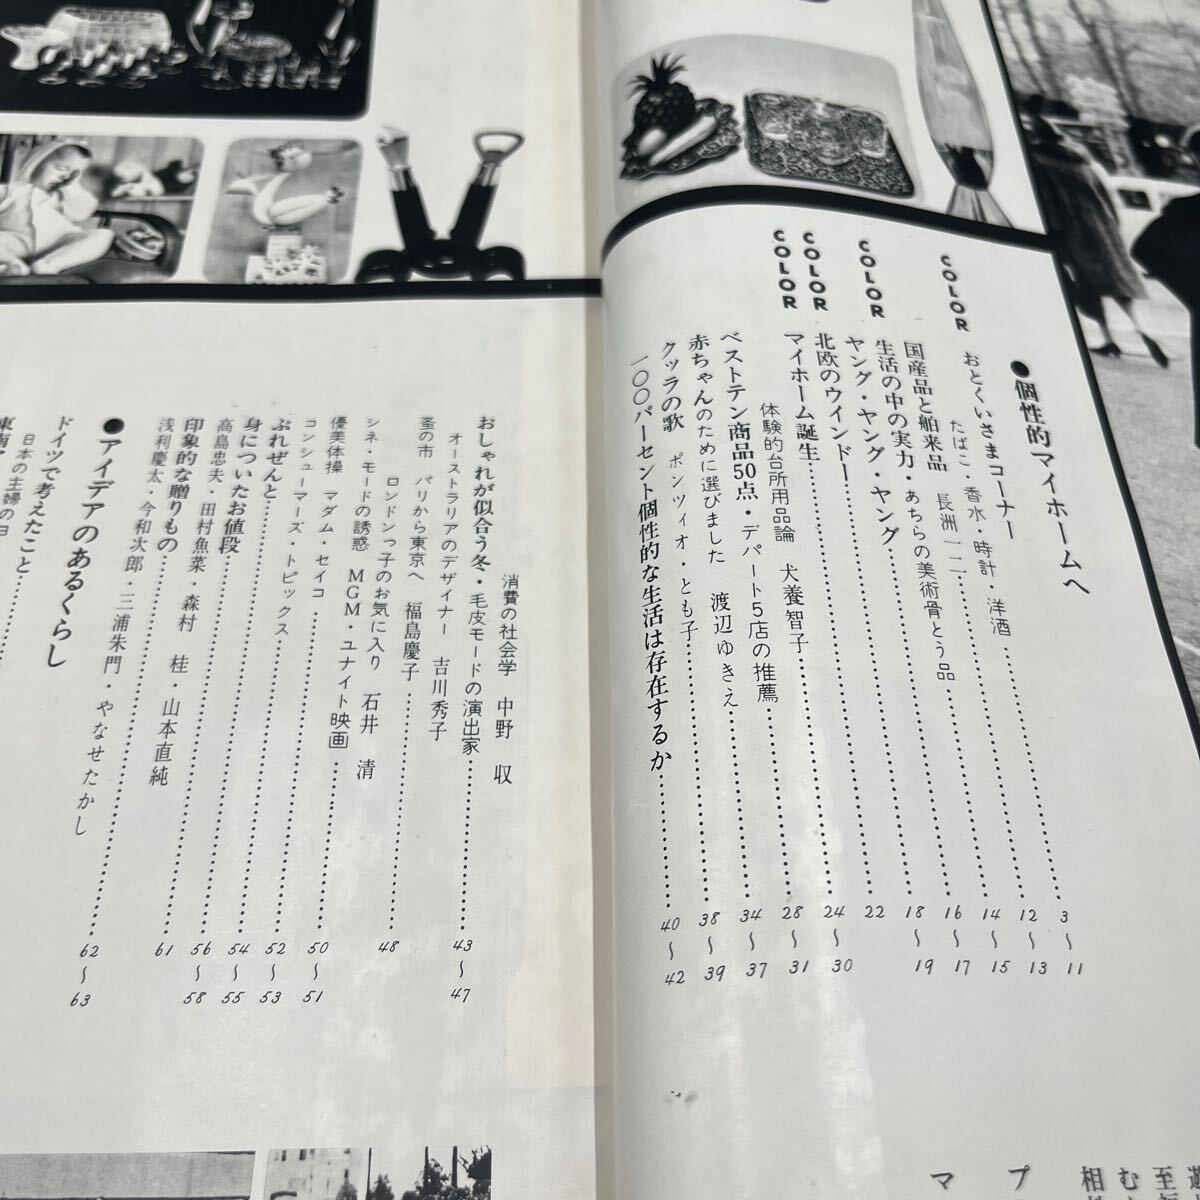 ●個性的マイホームへ
COLOR おとくいさまコーナー
たばこ・香水・時計・洋酒
国産品と舶来品 長洲一二
COLOR 生活の中の実力・あちらの美術骨とう品
ヤング・ヤング・ヤング
COLOR 北欧のウインドー
COLOR マイホーム誕生
体験的台所用品論 犬養智子
ベストテン商品50点・デパート5店の推薦
赤ちゃんのために選びました 渡辺ゆきえ
クッラの歌 ポンツィオ・とも子
一〇〇パーセント個性的な生活は存在するか
3〜11
12〜13
14〜15
16〜17
18〜19
22
24〜30
28〜31
34〜37
38〜39
40〜42
消費の社会学 中野 収
おしゃれが似合う冬・毛皮モードの演出家
オーストラリアのデザイナー 吉川秀子
蚤の市 パリから東京へ 福島慶子
ロンドンっ子のお気に入り 石井 清
シネ・モードの誘惑 MGM・ユナイト映画
優美体操 マダム・セイコ
コンシューマーズ・トピックス
ぷれぜんと
身についたお値段
高島忠夫・田村魚菜・森村 桂・山本直純
印象的な贈りもの
浅利慶太・今和次郎・三浦朱門・やなせたかし
●アイデアのあるくらし
ドイツで考えたこと
日本の主婦の目
東南
43〜47
48
50〜51
52〜53
54〜55
56〜58
61
62〜63
至
む
相
プ
マ